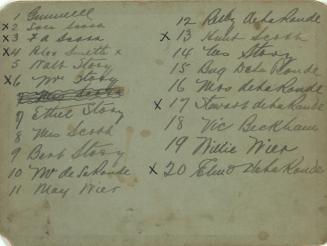 1 Gumwell
x 2 Sara Scosa
x 3 F A Scosa
x 4 Alex Smith x
5 Walt Story
x 6 Mr Story
7 Ethel Story
8 Mrs Scosh
9 Bert Story
10 Mr de La Ronde
11 May Wier
12 Ruby de La Ronde
x 13 Hunt Scosh
14 Geo Story
15 Bug De La Ronde
16 Mrs de La Ronde
x 17 Stewart de La Ronde
18 Vic Beckham
19 Willie Wier
x 20 Elmo De La Ronde